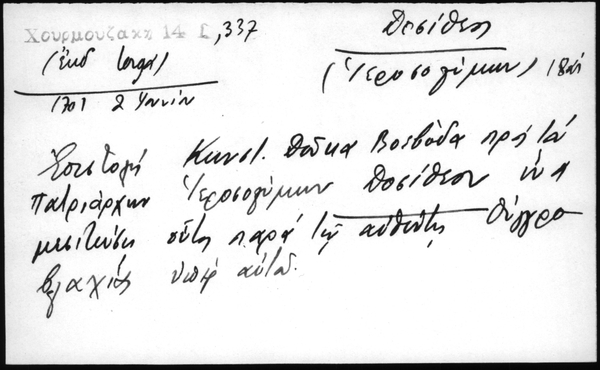 Χουρμουζακι 14 I, 337
(Ἐκδ Iorga)
1701 2 Ἰουνίου
Δοσίθεος
(Ἱεροσολύμων)
Ἐπιστολὴ Κωνστ. Δούκα Βοεβόδα πρὸς τὸν
πατριάρχην Ἱεροσολύμων Δοσίθεον ἵνα
μεσιτεύσῃ οὗτος παρὰ τῷ αὐθέντῃ Οὐγγρο
βλαχίας ὑπὲρ αὐτοῦ.